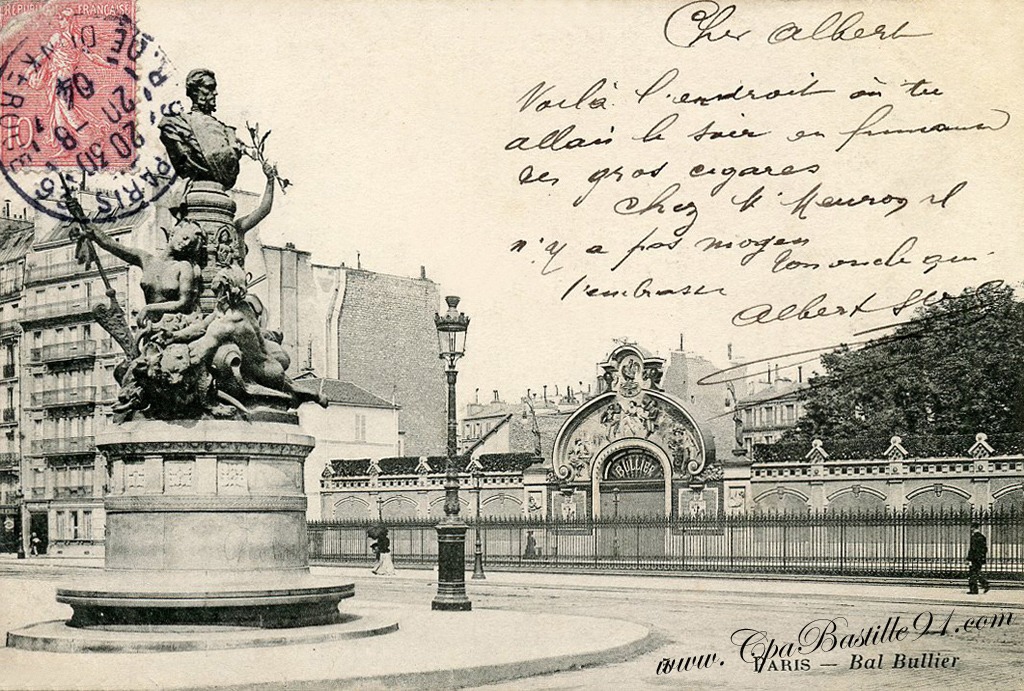 RÉPUBLIQUE FRANÇAISE
10
PARIS
20 30
Cher Albert
Voilà l'endroit où tu
allais le soir en fumant
des gros cigares
Chez M
n'y a pas moyen
qui
t'embrasse
Albert
BULLIER
www.CpaBastille91.com
PARIS — Bal Bullier